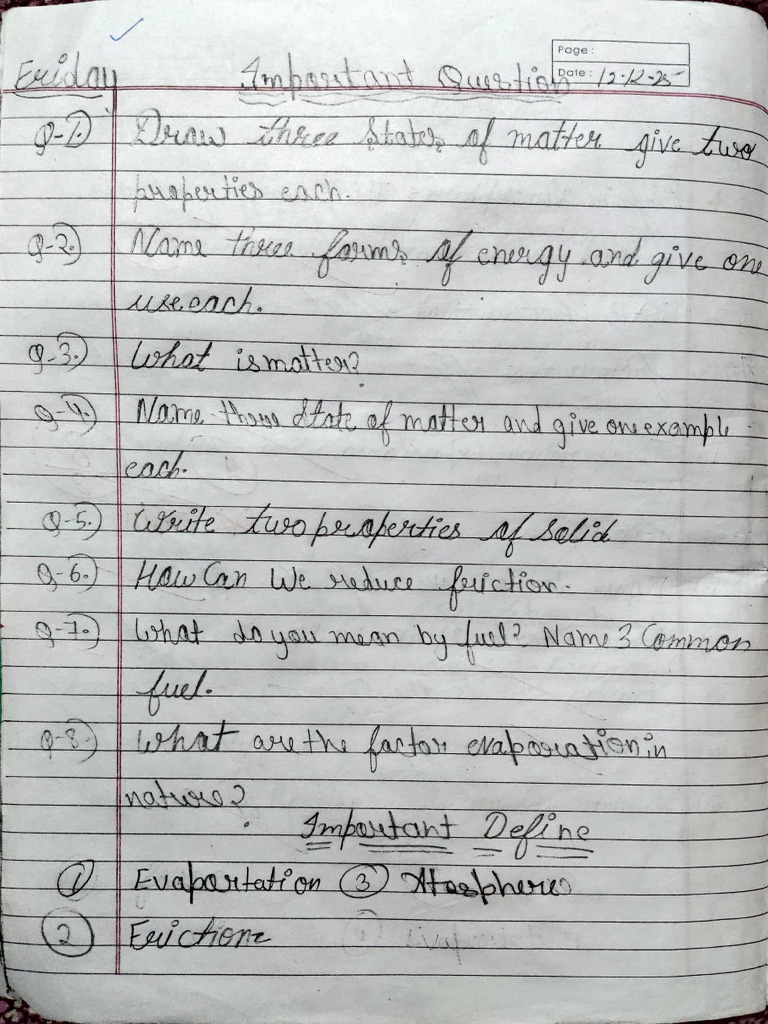 Page :
Date : 12-12-25
Friday Important Question
Q-1.) Draw three States of matter give two
properties each.
Q-2.) Name three forms of energy and give one
use each.
Q-3.) What is matter?
Q-4.) Name three State of matter and give one example
each.
Q-5.) Write two properties of solid
Q-6.) How Can We reduce friction.
Q-7.) What do you mean by fuel? Name 3 Common
fuel.
Q-8.) What are the factor evaporation in
nature?
Important Define
1 Evaportation 3 Atosphere
2 Friction